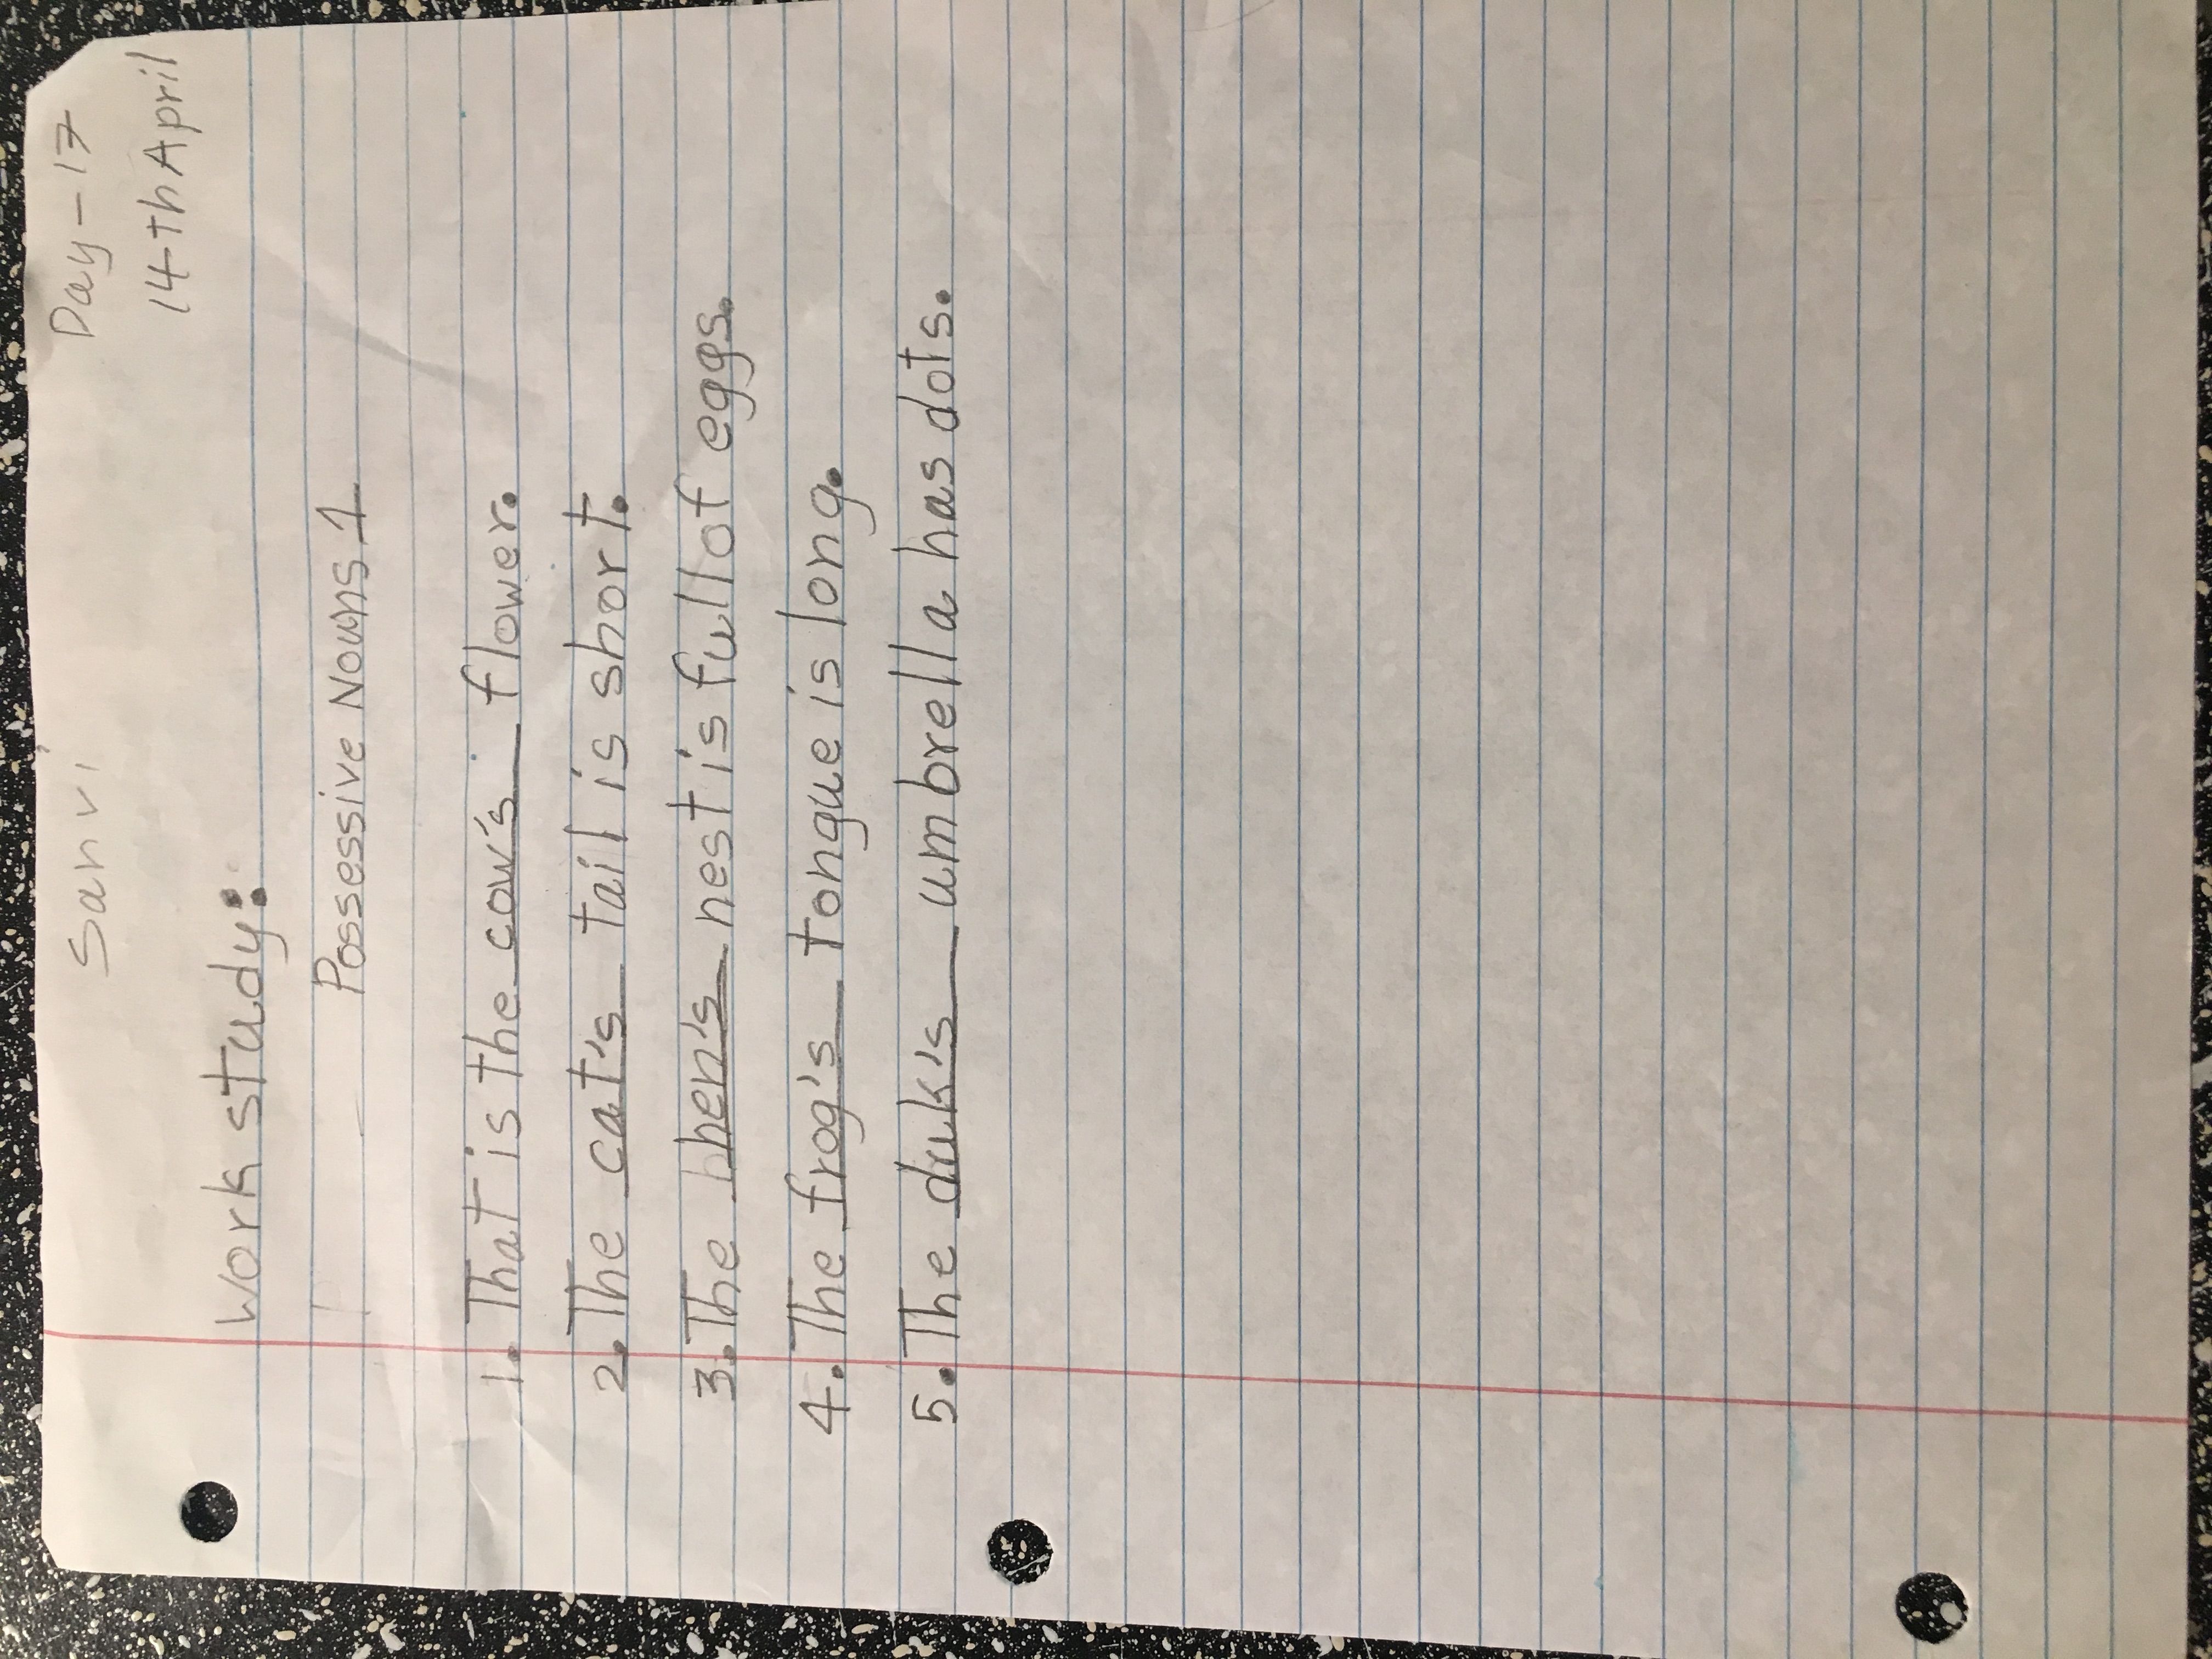 Sanvi
Day-17
14th April
Work study:
Possessive Nouns 1
1. That is the cow's flower.
2. The cat's tail is short.
3. The hen's nest is full of eggs.
4. The frog's tongue is long.
5. The duk's umbrella has dots.